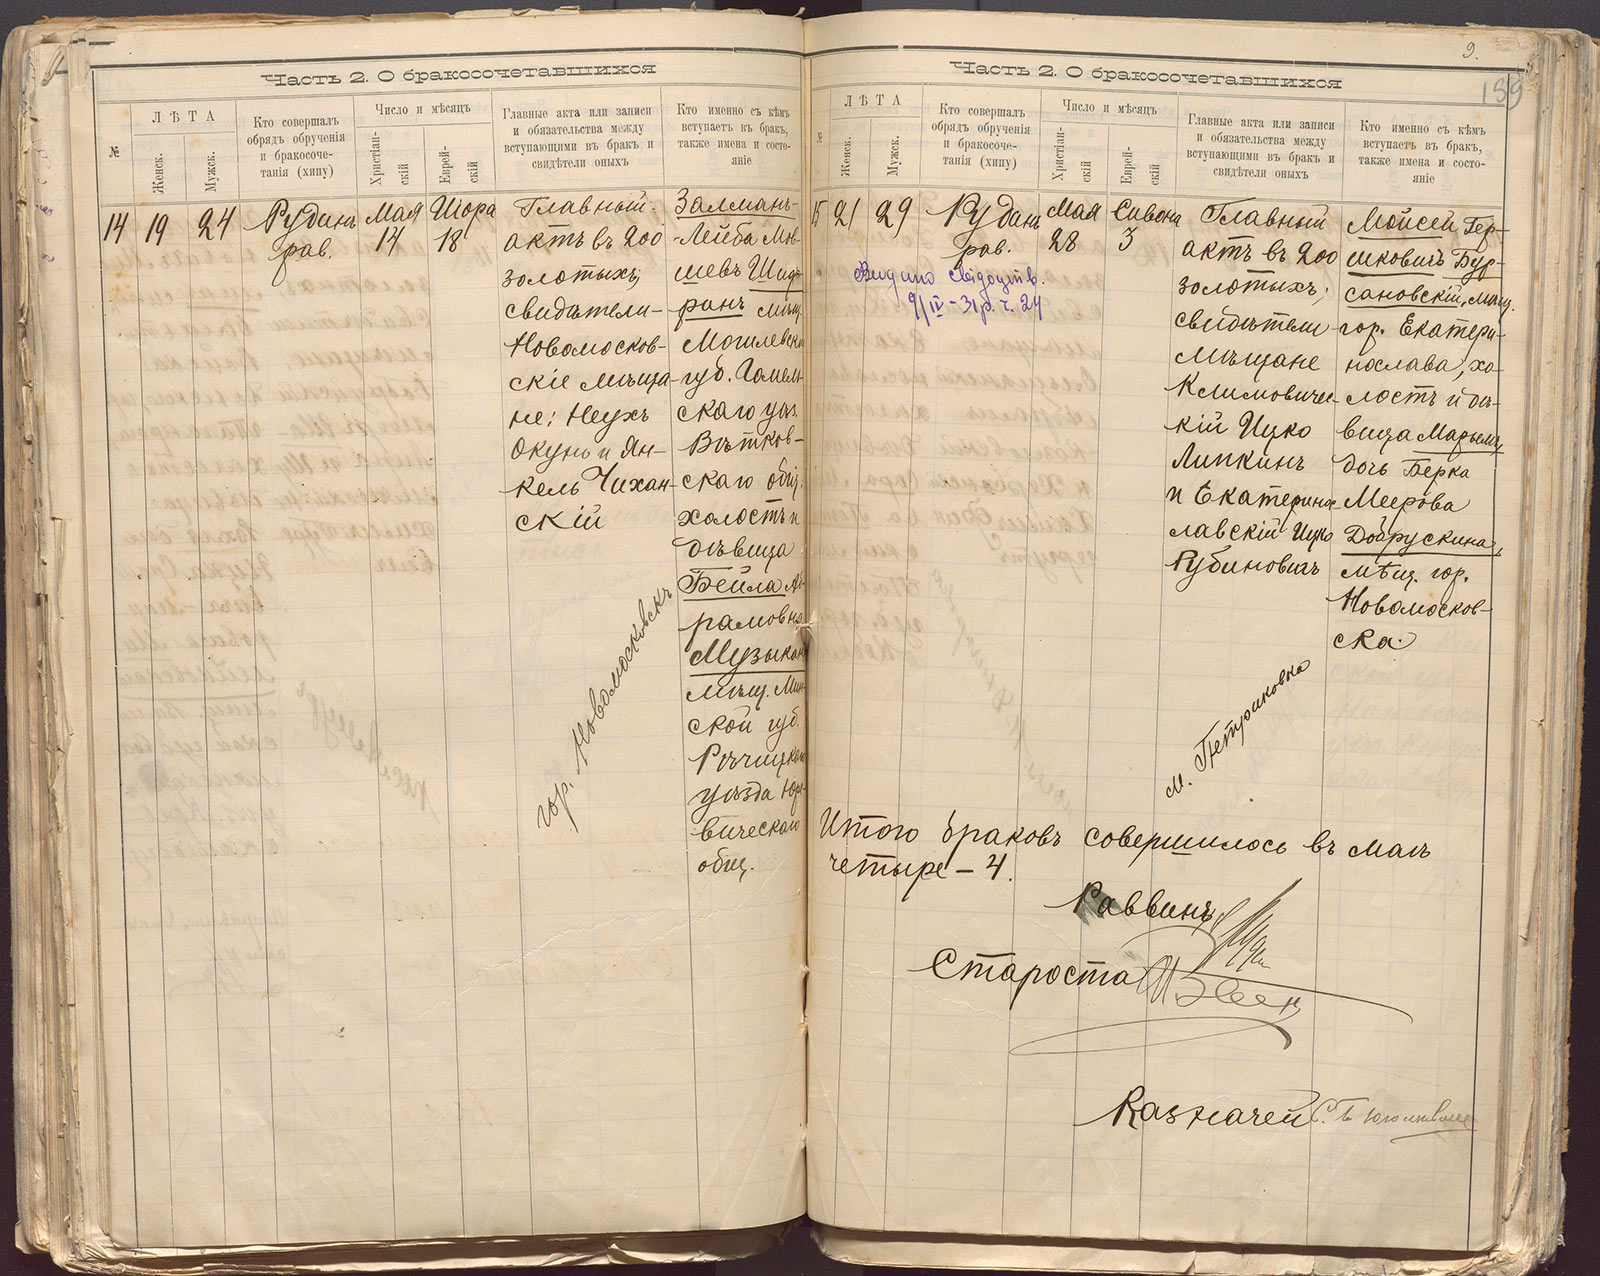 Часть 2. О бракосочетавшихся
№
ЛѢТА
Женск.
Мужск.
Кто совершалъ
обрядъ обрученія
и бракосоче-
танія (хипу)
Число и мѣсяцъ
Христіан-
скій
Еврей-
скій
Главные акта или записи
и обязательства между
вступающими въ бракъ и
свидѣтели оныхъ
Кто именно съ кѣмъ
вступаетъ въ бракъ,
также имена и состо-
яніе
14
19
24
Рудинъ
рав.
Мая
14
Іиора
18
Главный
актъ въ 200
золотыхъ;
свидѣтели-
Новомосков-
скіе мѣща-
не: Неухъ
Окунь и Ян-
кель Чихан-
скій
гор. Новомосковскъ
Залманъ-
-Лейба Мов-
шевъ
мѣщ.
Могилевск
губ. Гомель
скаго уѣз.
Вѣтков-
скаго общ.
холостъ и
дѣвица
Бейла Аб-
рамовна
Музыкан
мѣщ. Мин-
ской губ.
Рѣчицкаго
уѣзда Юре-
вическаго
общ.
9.
189
Часть 2. О бракосочетавшихся
№
ЛѢТА
Женск.
Мужск.
Кто совершалъ
обрядъ обрученія
и бракосоче-
танія (хипу)
Число и мѣсяцъ
Христіан-
скій
Еврей-
скій
Главные акта или записи
и обязательства между
вступающими въ бракъ и
свидѣтели оныхъ
Кто именно съ кѣмъ
вступаетъ въ бракъ,
также имена и состо-
яніе
15
21
29
Рудинъ
рав.
Видано свідоцтв.
9/IV-31р. ч. 24
Мая
28
Сивона
3
Главный
актъ въ 200
золотыхъ;
свидѣтели-
мѣщане
Климовичс-
кій Ицко
Липкинъ
и Екатерино
лавскій Ицко
Рубиновичъ
м. Петриковка
Мойсей Гер-
шковичъ Бур-
сановскій, мѣщ.
гор. Екатери-
нослава, хо-
лостъ и дѣ-
вица Марьяма,
дочь Берка
Меерова
Добрускина,
мѣщ. гор.
Новомосков-
ска.
Итого браковъ совершилось въ маѣ
четыре - 4.
Раввинъ
Староста
Казначей